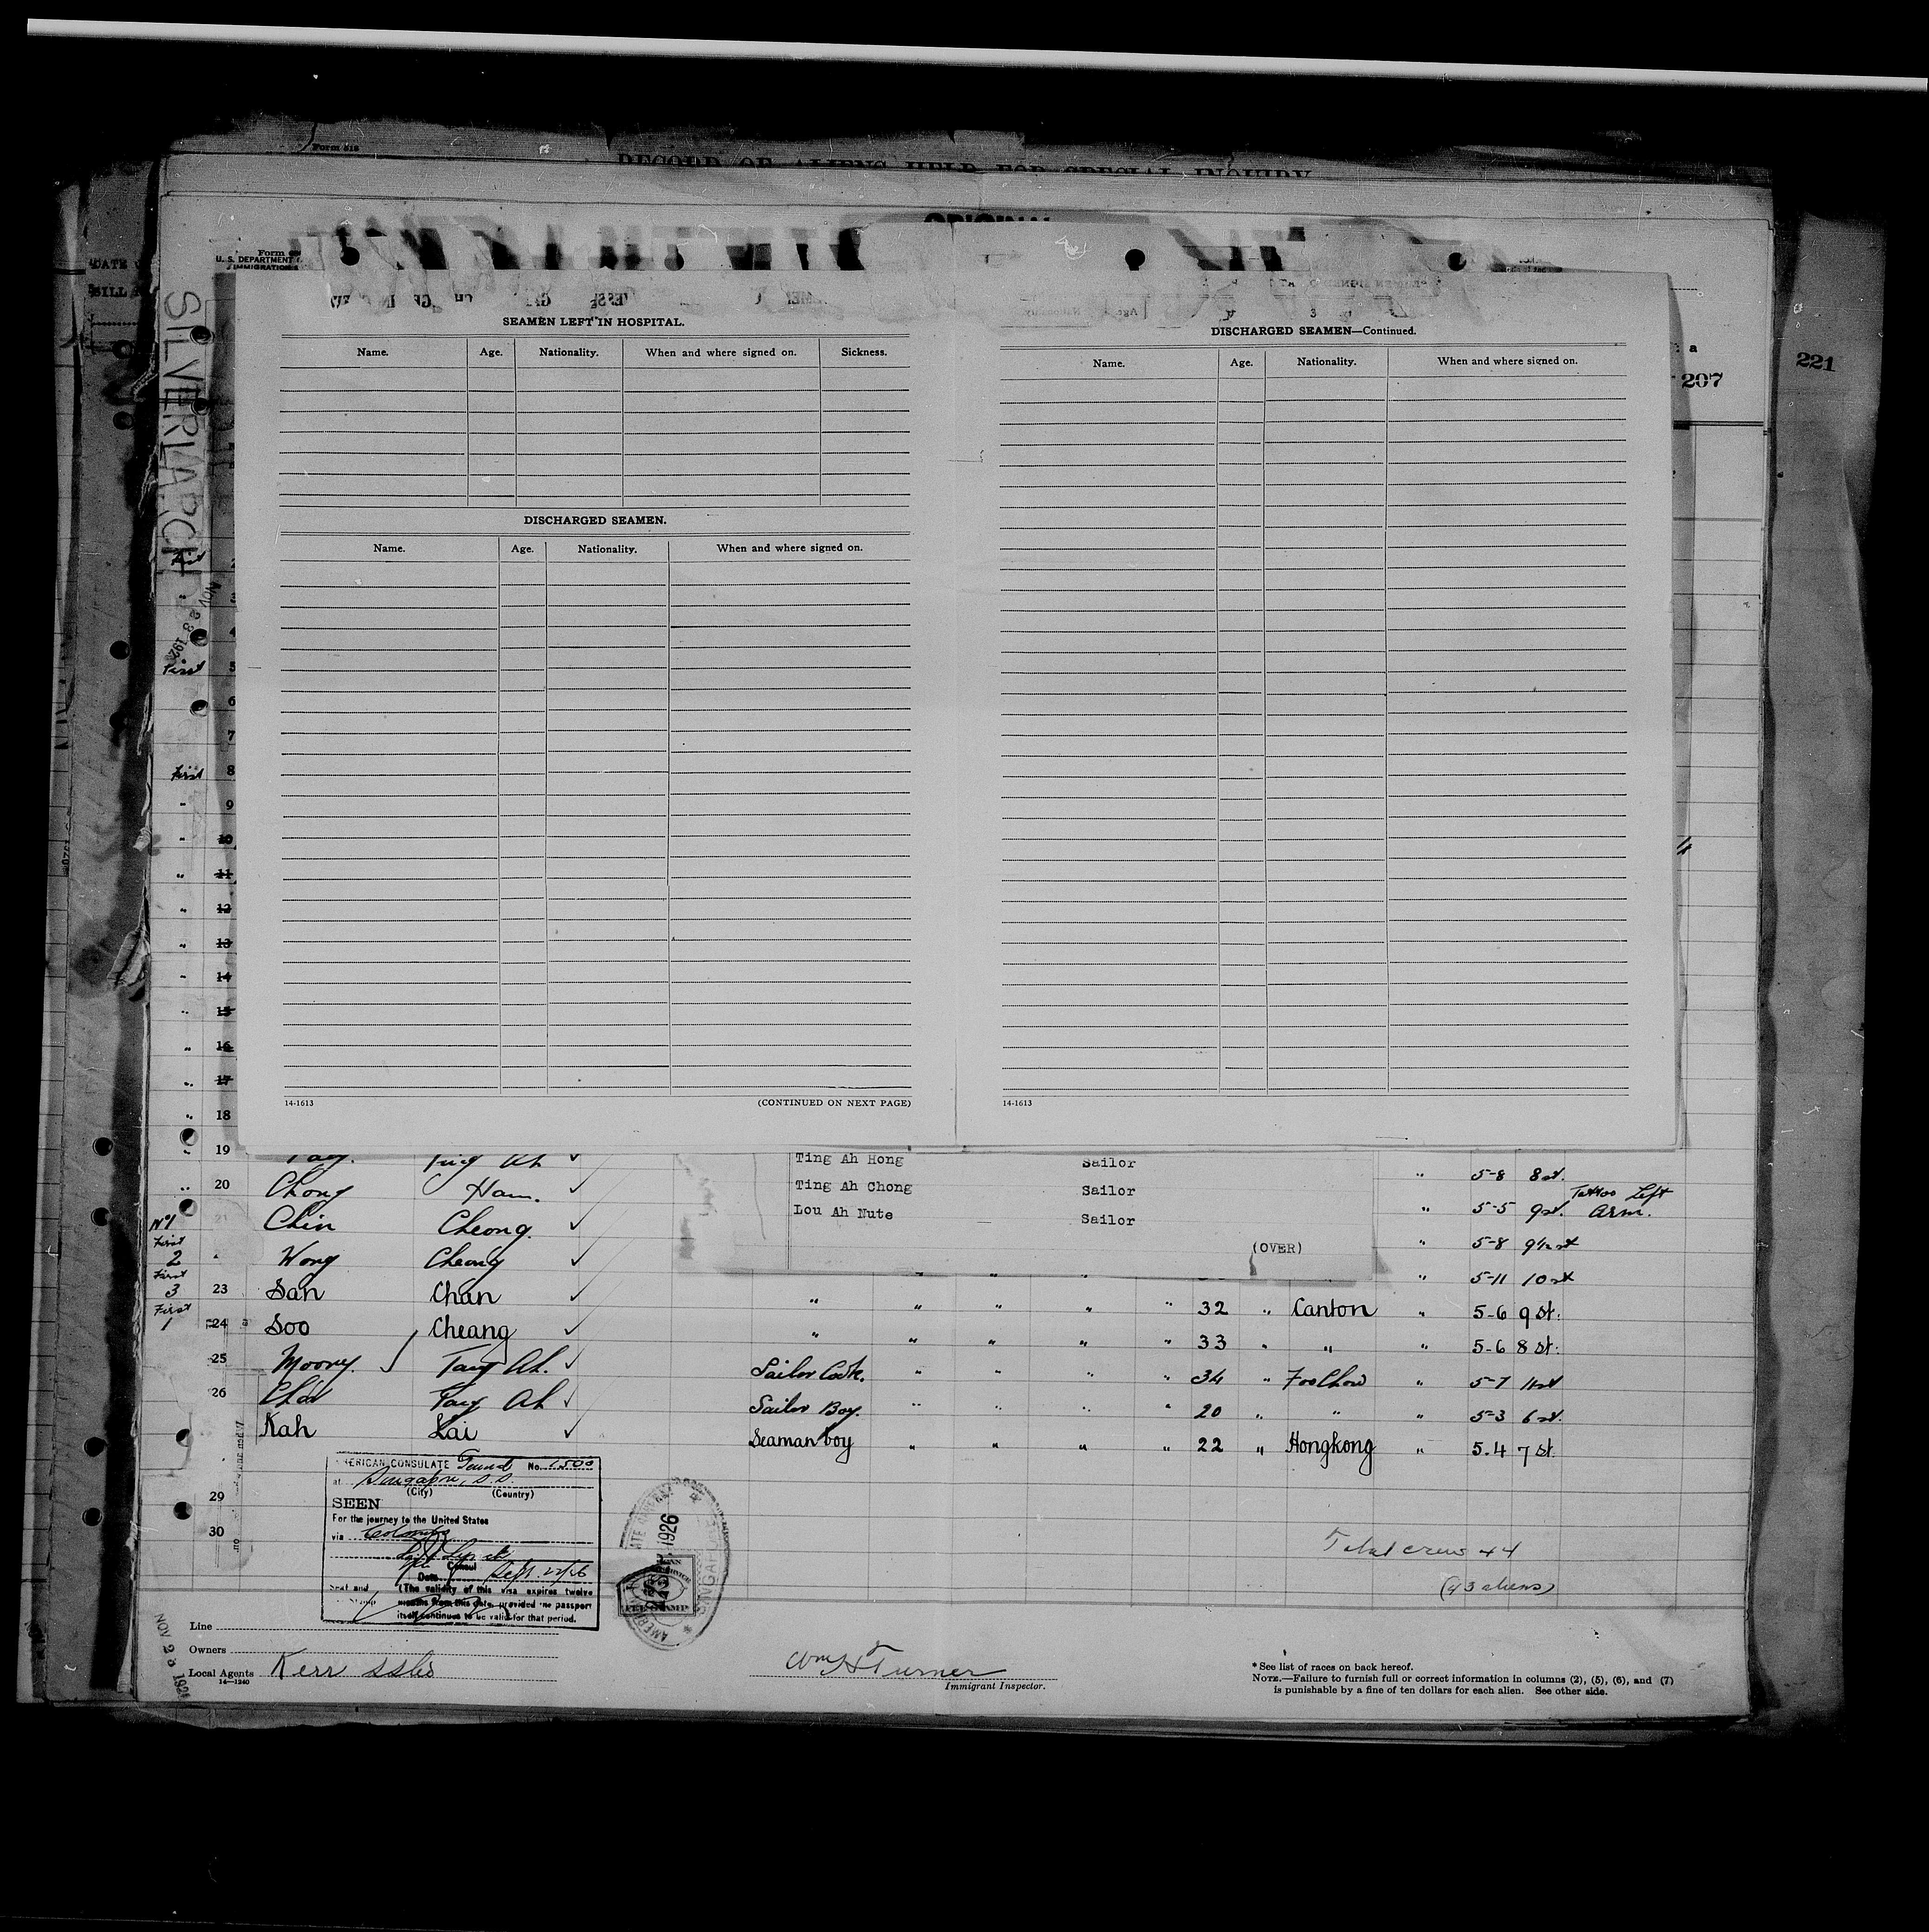 Form 518
RECORD OF ALIENS HELD FOR SPECIAL INQUIRY
ORIGINAL
Form
U. S. DEPARTMENT
IMMIGRATION
221
207
SILVERLARCH
SEAMEN LEFT IN HOSPITAL.
Name. Age. Nationality. When and where signed on. Sickness.
DISCHARGED SEAMEN.
Name. Age. Nationality. When and where signed on.
14-1613 (CONTINUED ON NEXT PAGE)
DISCHARGED SEAMEN—Continued.
Name. Age. Nationality. When and where signed on.
14-1613
First 5
6
7
First 8
" 9
" 10
" 11
" 12
" 13
" 14
" 15
" 16
" 17
" 18
" 19 Ting Ah
Ting Ah Hong Sailor
" 5-8 8 st.
" 20 Chong Ham.
Ting Ah Chong Sailor
" 5-5 9 st. Tattoo Left Arm.
No 1 21 Chin Cheong.
Lou Ah Nute Sailor
" 5-8 9½ st
(OVER)
First 2 Wong Cheong
" 5-11 10 st
First 3 23 San Chan " " " " " 32 " Canton " 5-6 9 st.
First 1 24 Soo Cheang " " " " " 33 " " " 5-6 8 st.
25 Moony. Tang Ah. Sailor Cook. " " " " 34 " FooChow " 5-7 11 st
26 Choi Tang Ah Sailor Boy. " " " " 20 " " " 5-3 6 st.
Kah Lai Seaman boy " " " " 22 " Hongkong " 5.4 7 st.
29
30
AMERICAN CONSULATE General No. 1500
at Singapore, S.S.
(City) (Country)
SEEN
For the journey to the United States
via Colombo
Consul
Date Sept. 22/26
Seal and (The validity of this visa expires twelve
Stamp months from this date, provided the passport
itself continues to be valid for that period.
1926
FEE STAMP
Total crew 44
(43 aliens)
NOV 23 192
Line
Owners
Local Agents Kerr SS Co
14—1240
Wm H Turner
Immigrant Inspector.
* See list of races on back hereof.
NOTE.—Failure to furnish full or correct information in columns (2), (5), (6), and (7)
is punishable by a fine of ten dollars for each alien. See other side.